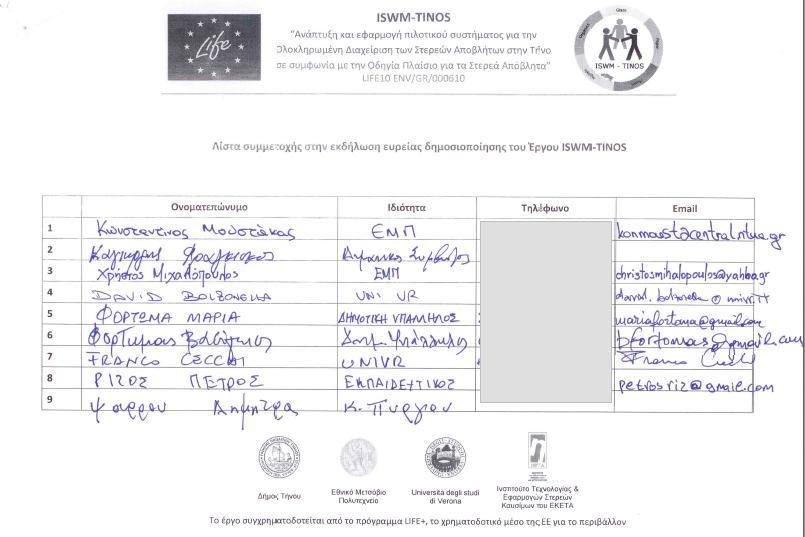 ISWM-TINOS
“Ανάπτυξη και εφαρμογή πιλοτικού συστήματος για την
Ολοκληρωμένη Διαχείριση των Στερεών Αποβλήτων στην Τήνο
σε συμφωνία με την Οδηγία Πλαίσιο για τα Στερεά Απόβλητα”
LIFE10 ENV/GR/000610
Life
ISWM - TINOS
Λίστα συμμετοχής στην εκδήλωση ευρείας δημοσιοποίησης του Έργου ISWM-TINOS
Ονοματεπώνυμο Ιδιότητα Τηλέφωνο Email
1 Κωνσταντίνος Μουστάκας ΕΜΠ konmoust@central.ntua.gr
2
3 Χρήστος Μιχαλόπουλος ΕΜΠ christosmihalopoulos@yahoo.gr
4 DAVID BOLZONELLA UNI VR
5 ΦΟΡΤΩΜΑ ΜΑΡΙΑ ΔΗΜΟΤΙΚΗ ΥΠΑΛΛΗΛΟΣ
6 bfortomas@gmail.com
7 FRANCO CECCHI UNIVR
8 ΡΙΖΟΣ ΠΕΤΡΟΣ ΕΚΠΑΙΔΕΥΤΙΚΟΣ petrosriz@gmail.com
9 Δημήτρα Κ. Πύργου
Δήμος Τήνου
Εθνικό Μετσόβιο
Πολυτεχνείο
Università degli studi
di Verona
Ινστιτούτο Τεχνολογίας &
Εφαρμογών Στερεών
Καυσίμων του ΕΚΕΤΑ
Το έργο συγχρηματοδοτείται από το πρόγραμμα LIFE+, το χρηματοδοτικό μέσο της ΕΕ για το περιβάλλον